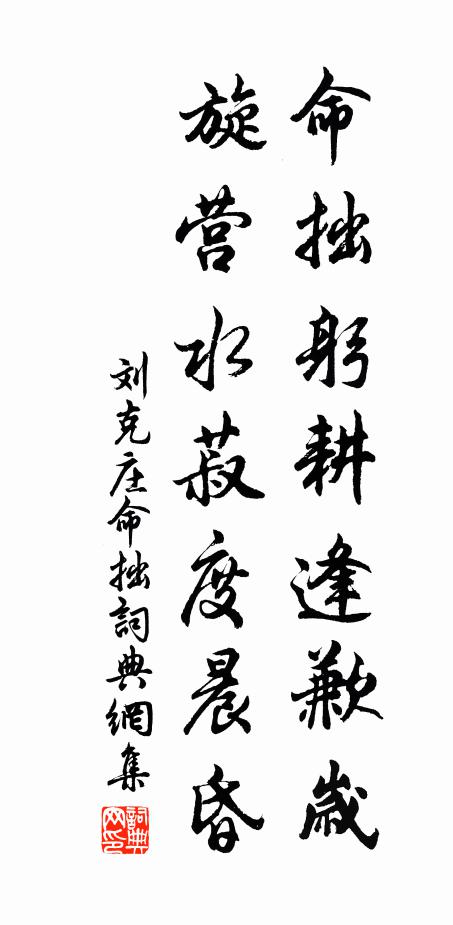 命拙躬耕逢歉岁
旋营水菽度晨昏
刘克庄命拙詞典網集
詞典网印